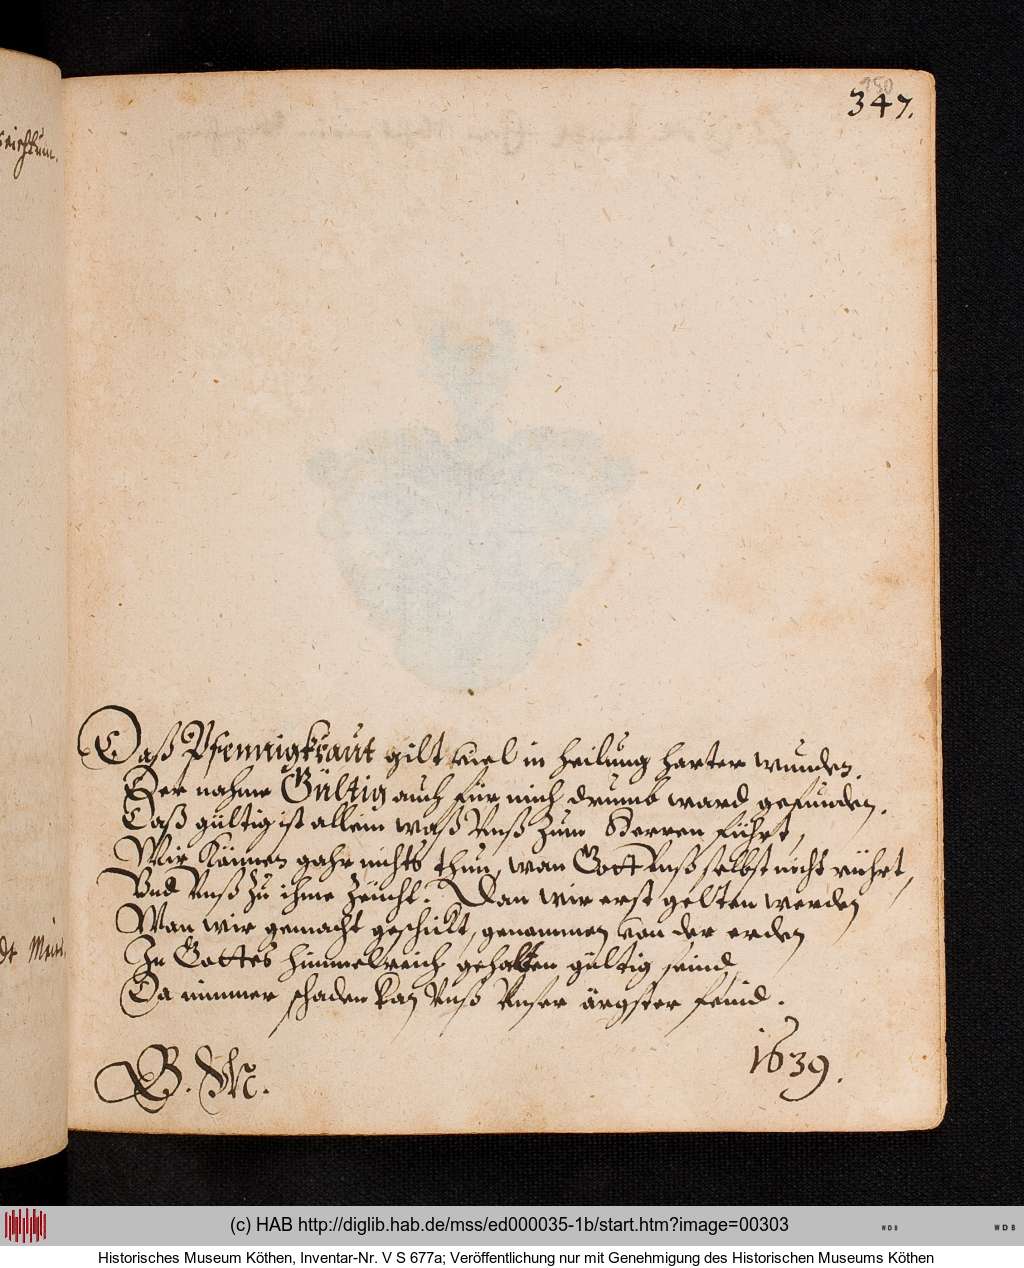 280
347.
Daß Pfennigkraut gilt viel in heilung harter wunden.
Der nahme Gültig auch für mich drumb ward gefunden.
Daß gültig ist allein waß Vnß zum Herren führt,
Wir können gahr nichts thun, wan Gott Vnß selbst nicht rührt,
Vnd Vnß zu ihme zeücht. Dan wir erst gelten werden
Wan wir gemacht geschickt, genommen von der erden
In Gottes himmelreich gehalten gültig seind,
Da nimmer schaden kan Vnß Vnser ärgster feind.
1639.
(c) HAB http://diglib.hab.de/mss/ed000035-1b/start.htm?image=00303
WDB
WDB
Historisches Museum Köthen, Inventar-Nr. V S 677a; Veröffentlichung nur mit Genehmigung des Historischen Museums Köthen